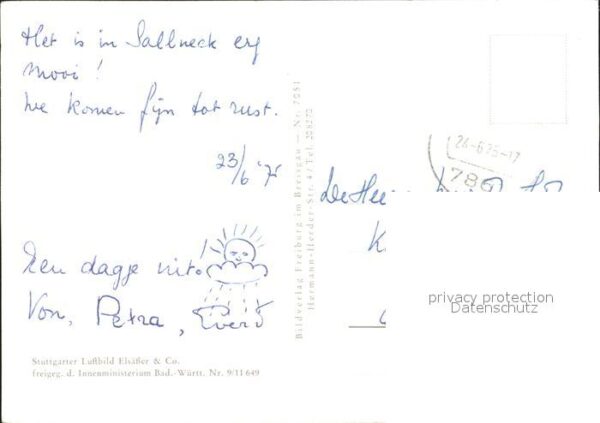 Het is in Sallneck erg
mooi!
We komen fijn tot rust.
23/6 '75
Een dagje uit!
Von, Petra, Evert
Stuttgarter Luftbild Elsäßer & Co.
freigeg. d. Innenministerium Bad.-Württ. Nr. 9/11 649
Bildverlag Freiburg im Breisgau — Nr. 7051
Hermann-Herder-Str. 4 / Tel. 208270
24-6.75-17
786
De Heer
privacy protection
Datenschutz